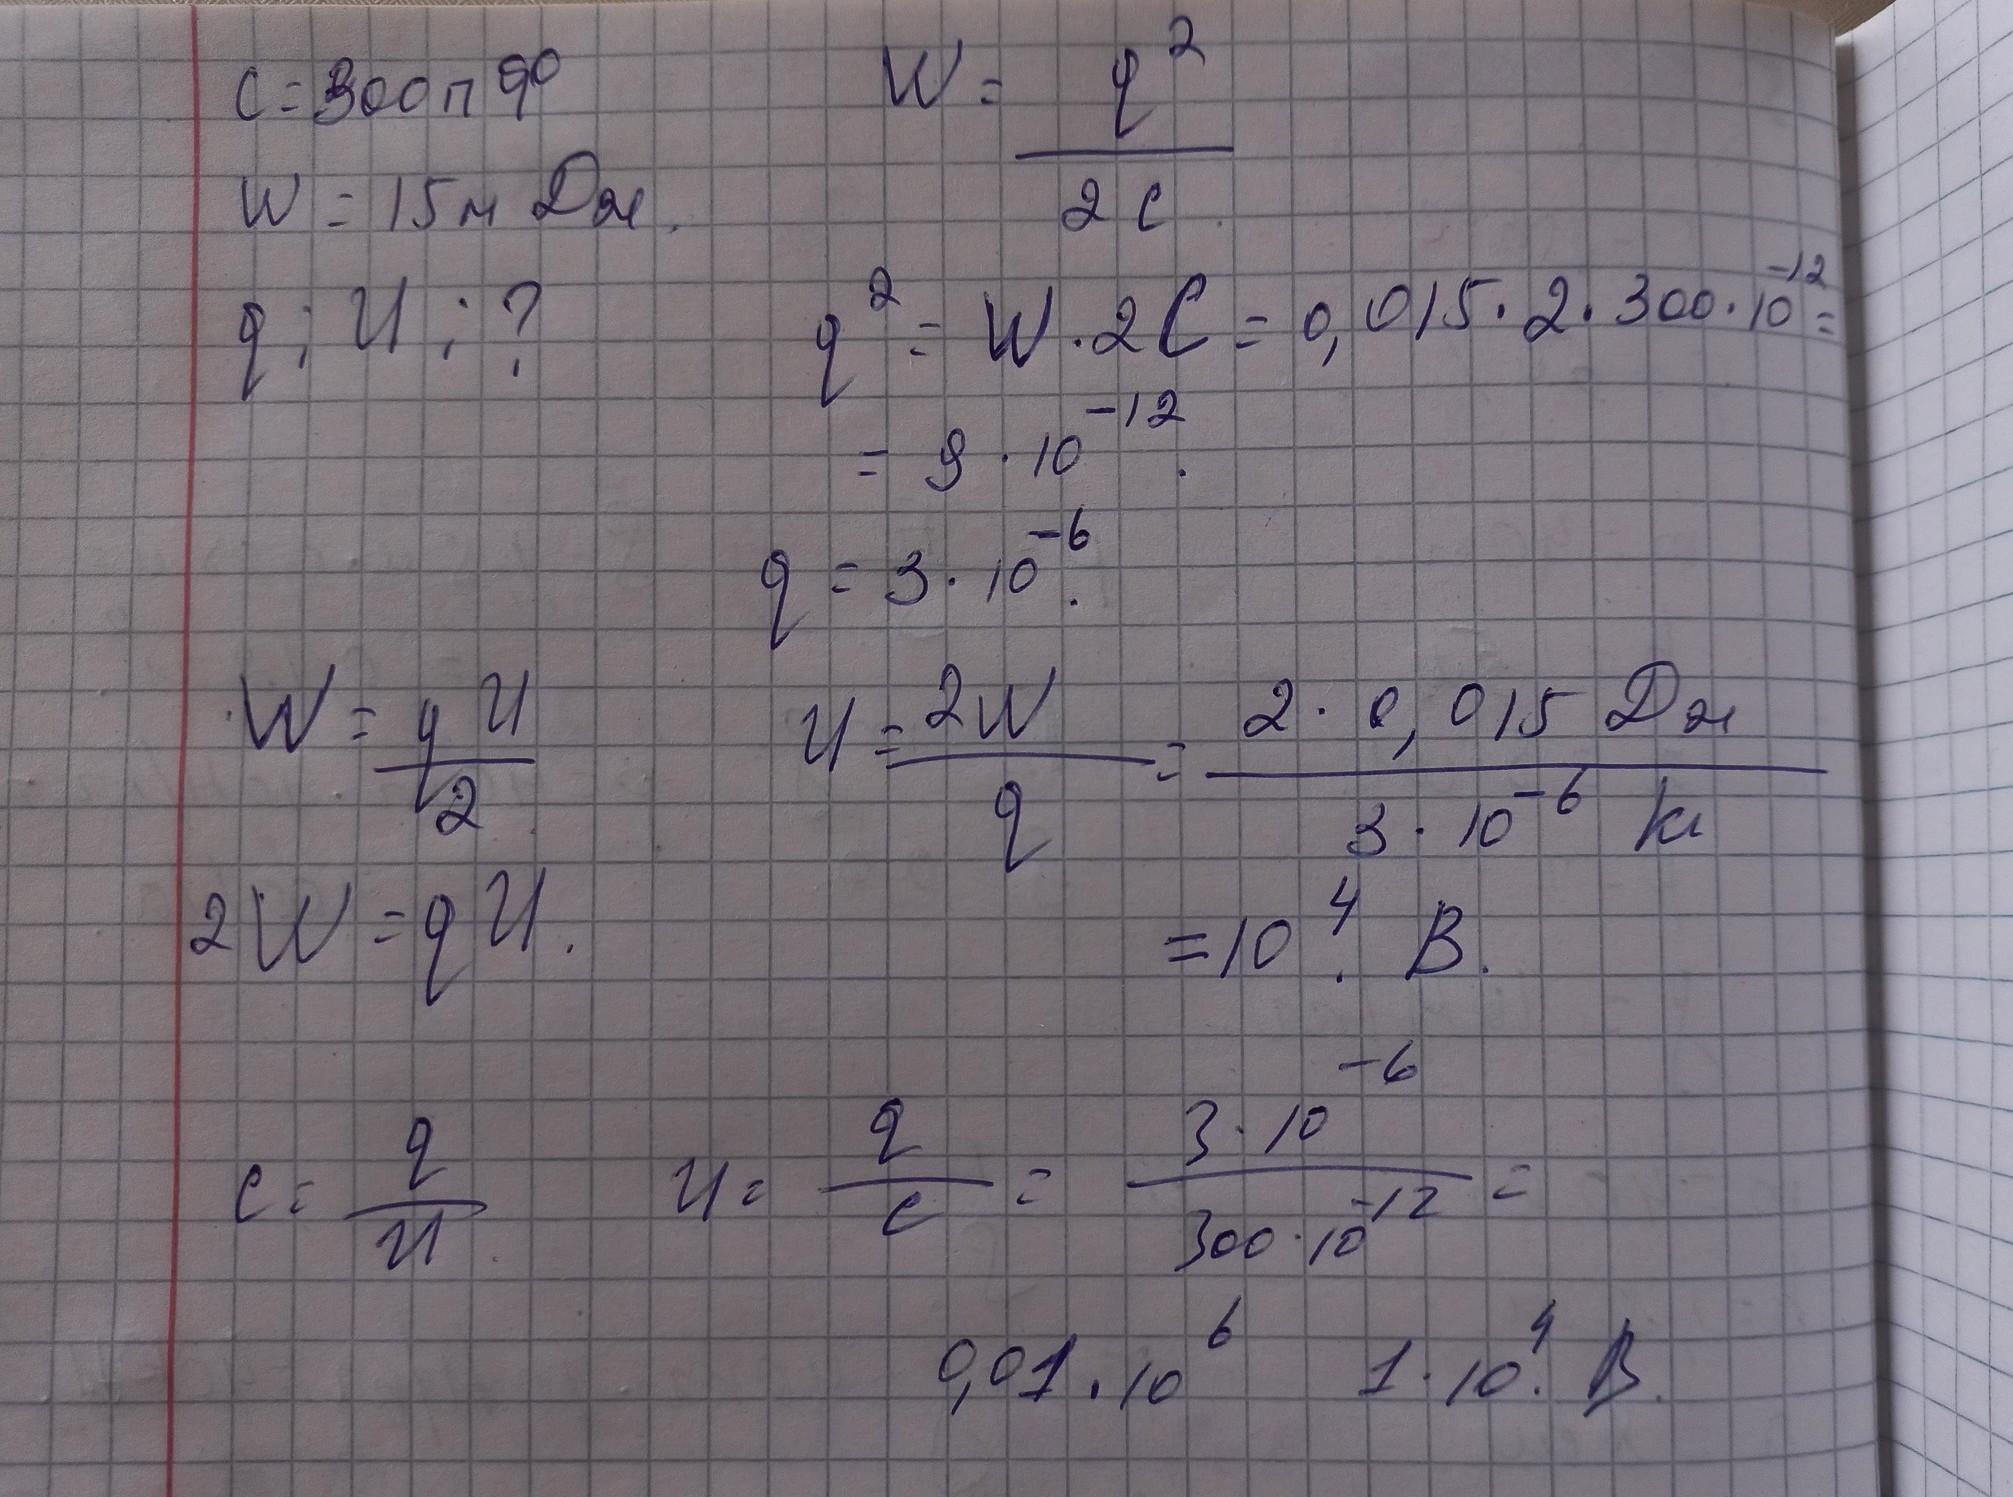 C = 300 пФ
W = q² / 2C.
W = 15 м Дж.
q ; U ; ?
q² = W · 2C = 0,015 · 2 · 300 · 10⁻¹² =
= 9 · 10⁻¹².
q = 3 · 10⁻⁶.
W = qU / 2
U = 2W / q = 2 · 0,015 Дж / 3 · 10⁻⁶ Кл
2W = qU.
= 10⁴. В.
C = q / U.
U = q / C = 3 · 10⁻⁶ / 300 · 10⁻¹² =
0,01 · 10⁶ 1 · 10⁴. В.